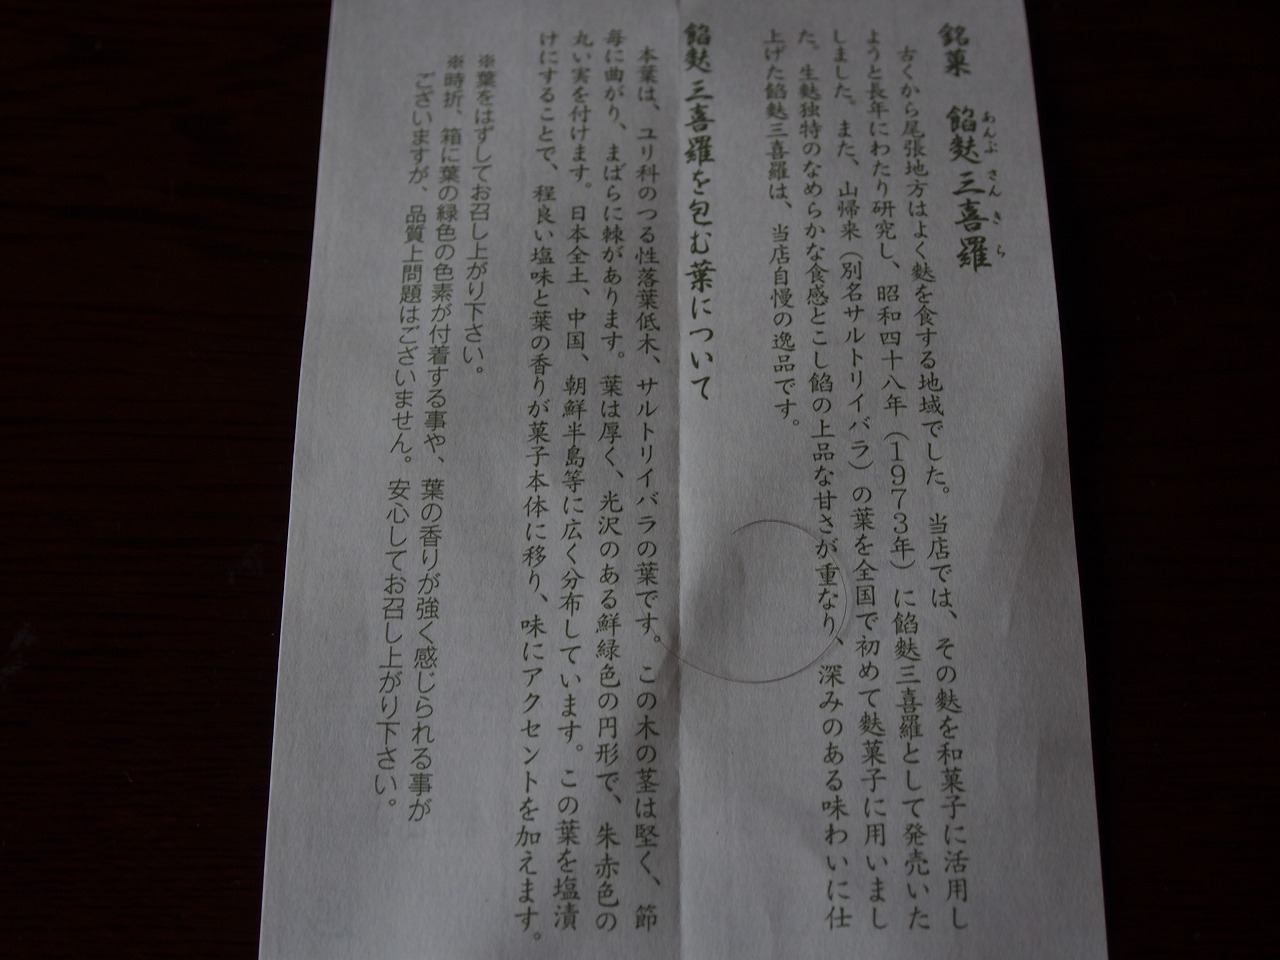 銘菓 餡麩三喜羅
あんぶさんきら
古くから尾張地方はよく麩を食する地域でした。当店では、その麩を和菓子に活用し
ようと長年にわたり研究し、昭和四十八年(1973年)に餡麩三喜羅として発売いた
しました。また、山帰来(別名サルトリイバラ)の葉を全国で初めて麩菓子に用いまし
た。生麩独特のなめらかな食感とこし餡の上品な甘さが重なり、深みのある味わいに仕
上げた餡麩三喜羅は、当店自慢の逸品です。
餡麩三喜羅を包む葉について
本葉は、ユリ科のつる性落葉低木、サルトリイバラの葉です。この木の茎は堅く、節
毎に曲がり、まばらに棘があります。葉は厚く、光沢のある鮮緑色の円形で、朱赤色の
丸い実を付けます。日本全土、中国、朝鮮半島等に広く分布しています。この葉を塩漬
けにすることで、程良い塩味と葉の香りが菓子本体に移り、味にアクセントを加えます。
※葉をはずしてお召し上がり下さい。
※時折、箱に葉の緑色の色素が付着する事や、葉の香りが強く感じられる事が
ございますが、品質上問題はございません。安心してお召し上がり下さい。